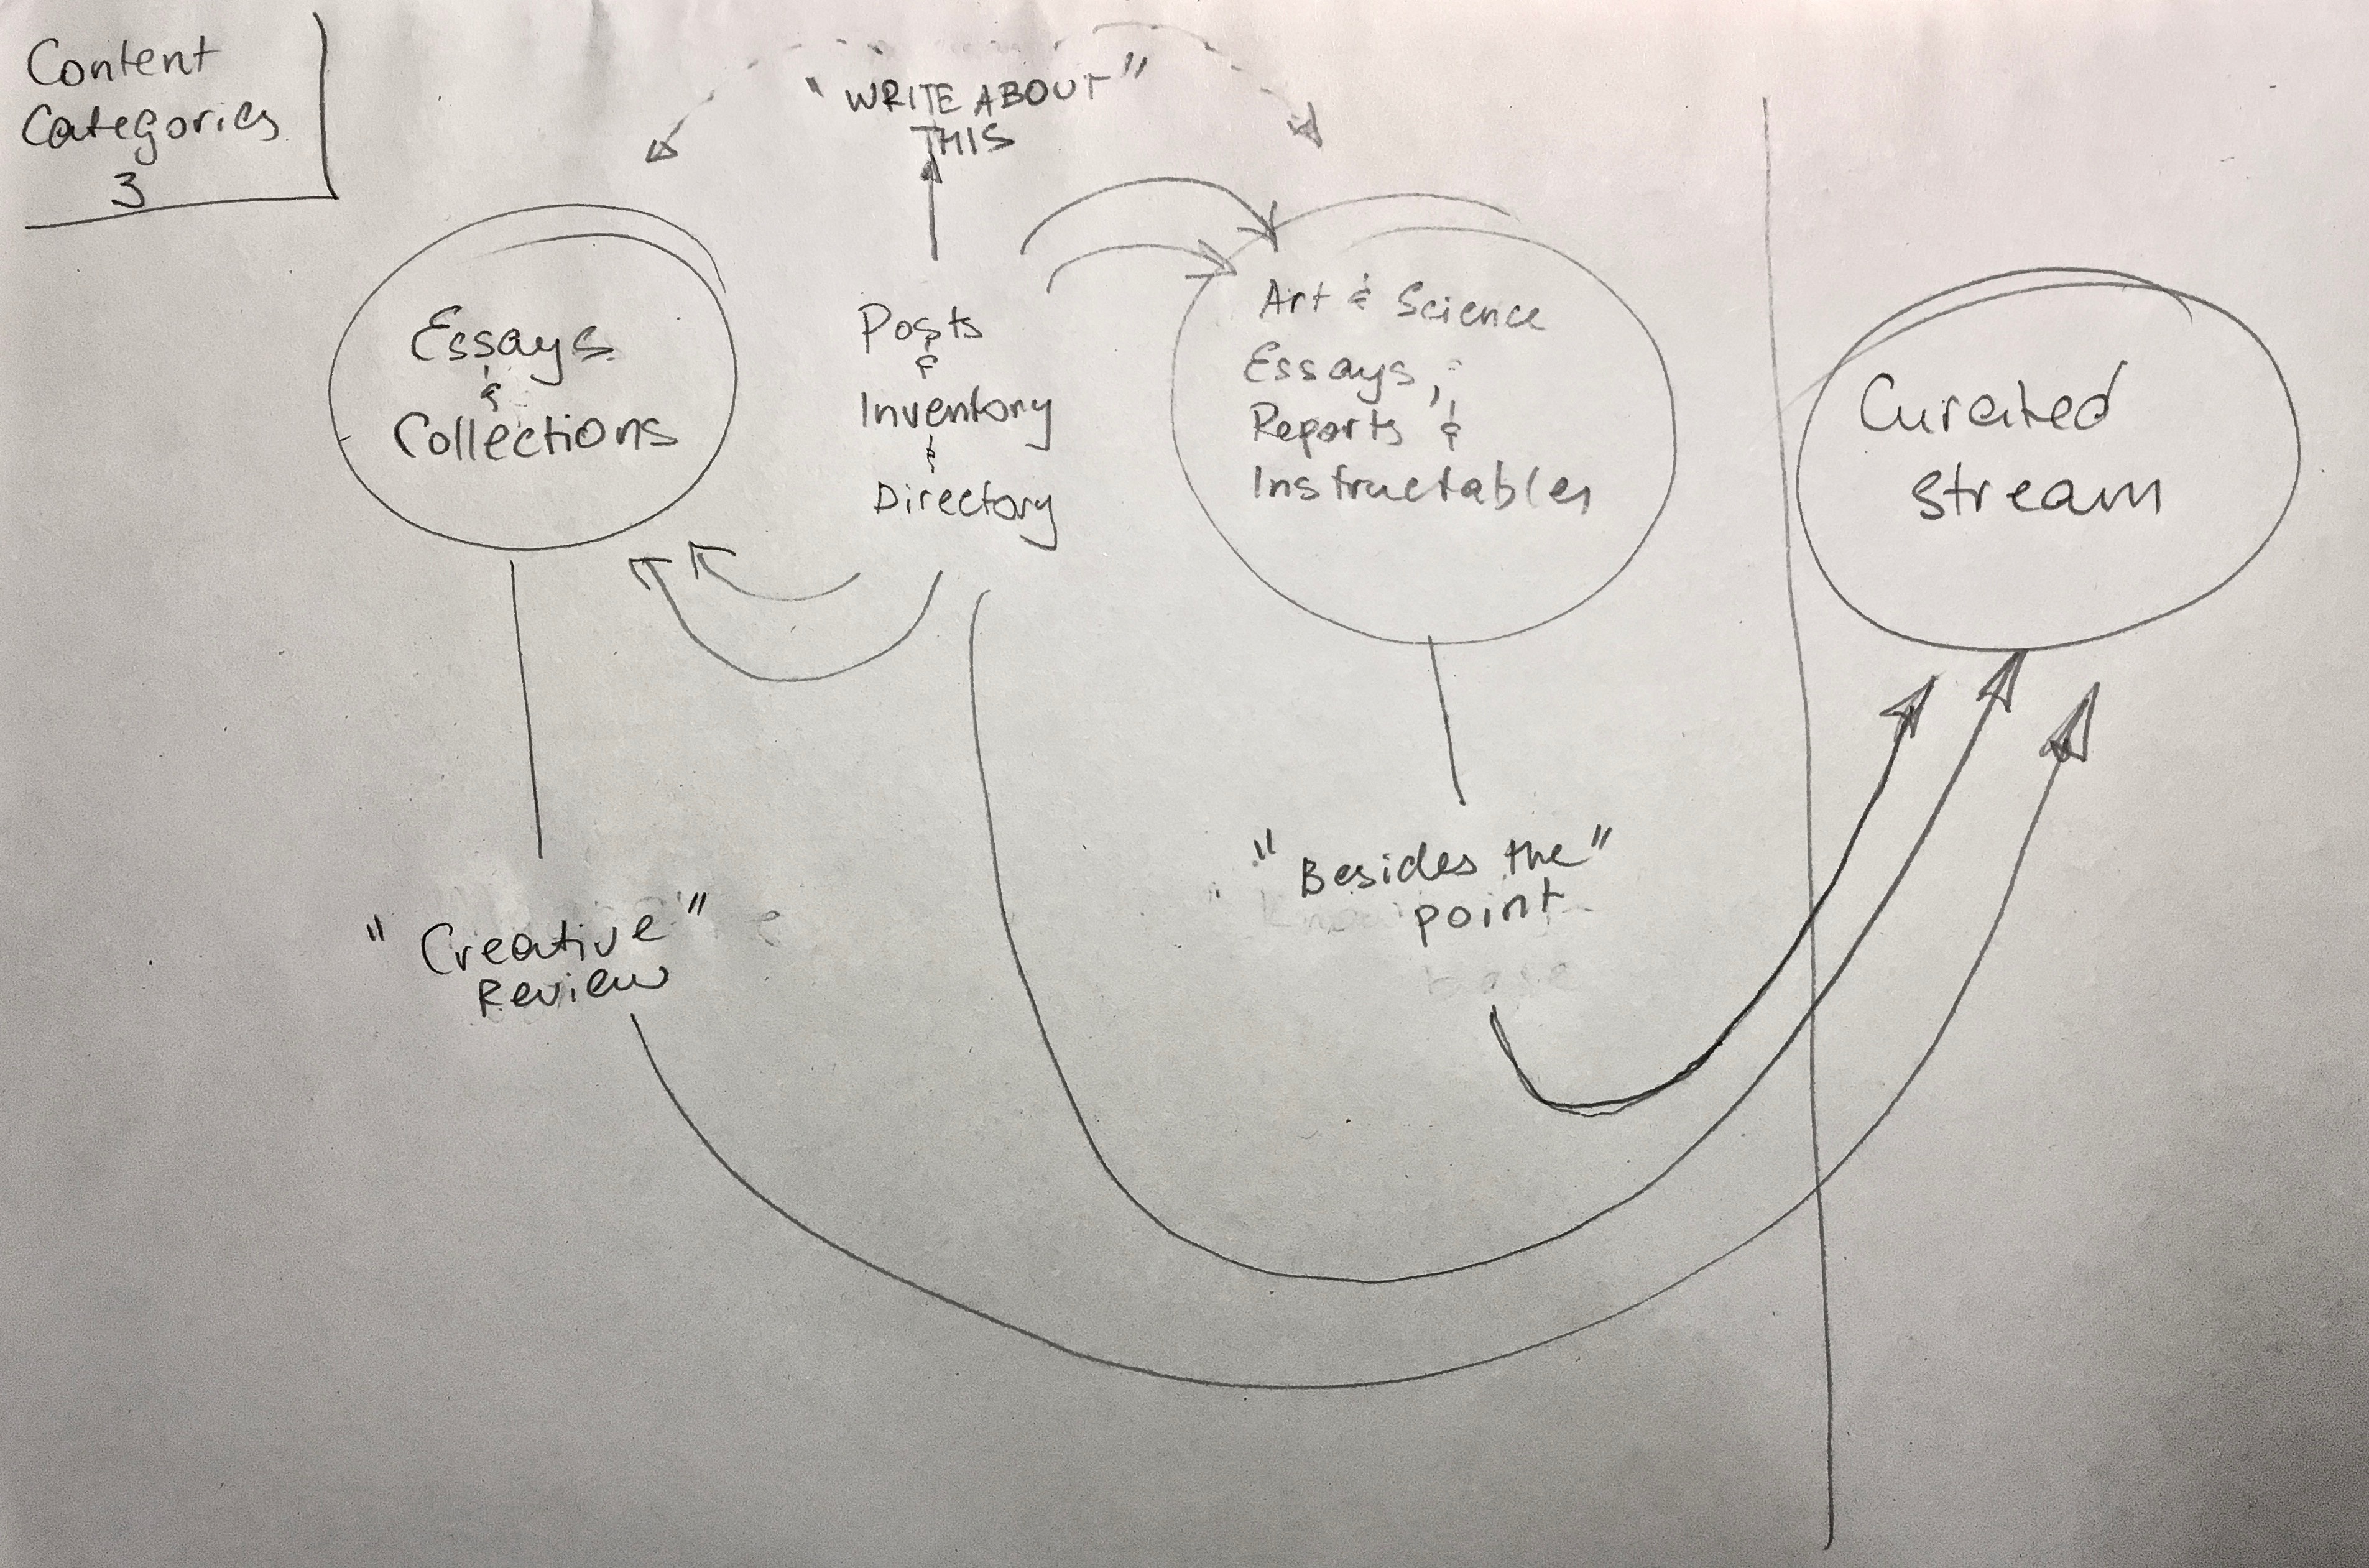 Content
Categories
3
"WRITE ABOUT"
THIS
Essays
&
Collections
Posts
&
Inventory
&
Directory
Art & Science
Essays,
Reports &
Instructables
Curated
stream
"Creative"
Review
"Besides the"
point